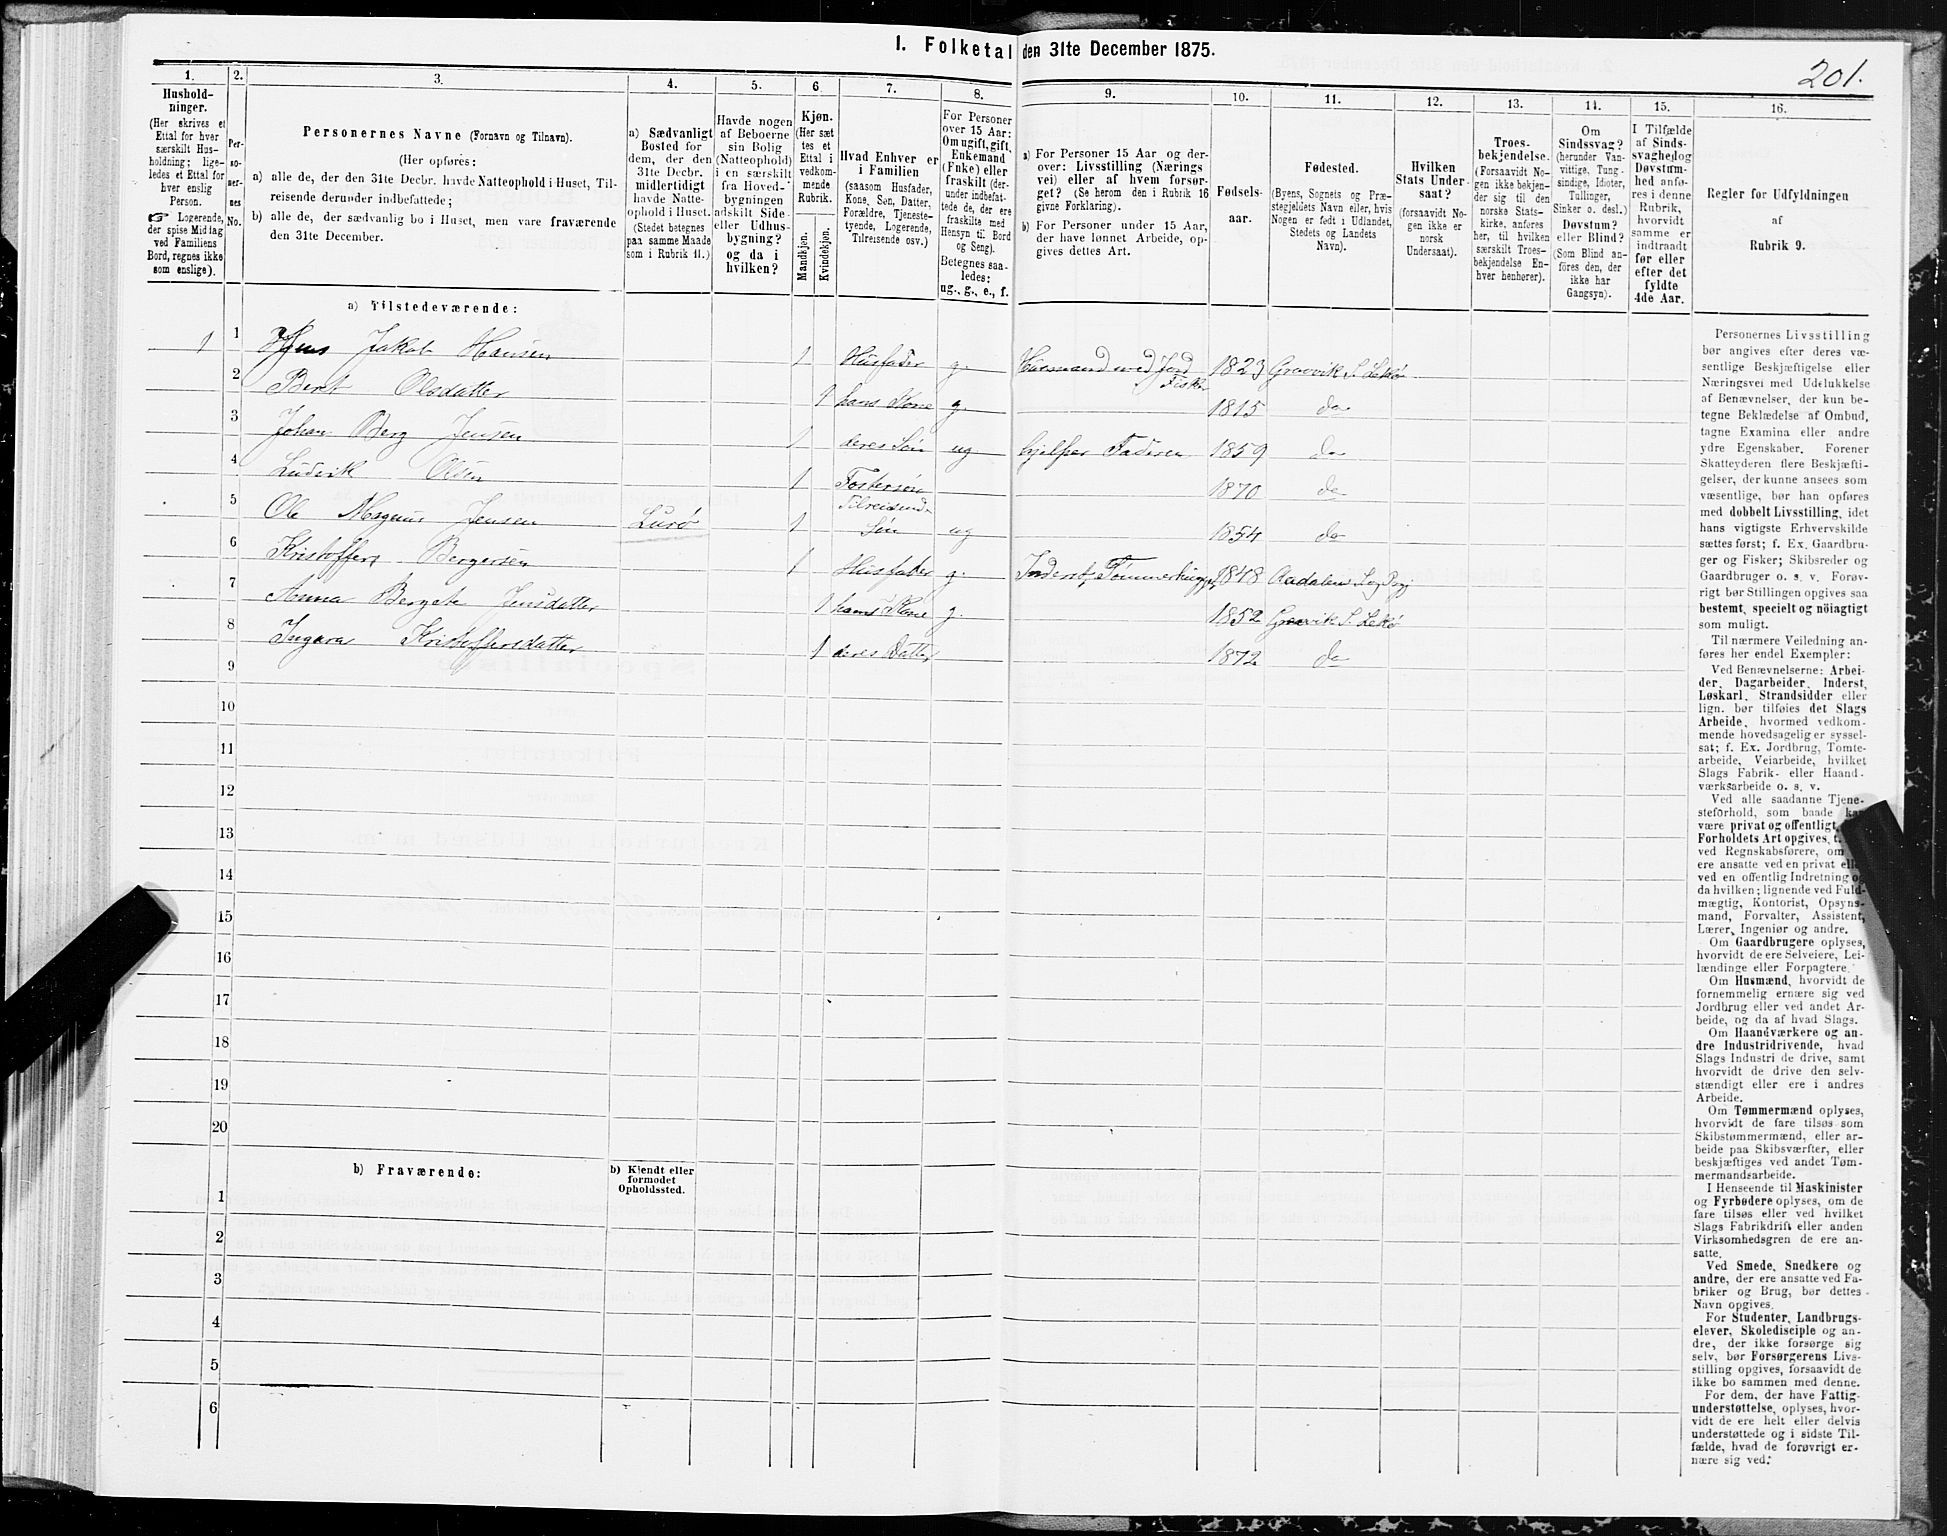 1. Folketal den 31te December 1875.
201.
1.
Hushold-
ninger.
(Her skrives et
Ettal for hver
særskilt Hus-
holdning; lige-
ledes et Ettal for
hver enslig
Person.
☞ Logerende,
der spise Middag
ved Familiens
Bord, regnes ikke
som enslige).
2.
Per-
so-
ner-
nes
No.
3.
Personernes Navne (Fornavn og Tilnavn).
(Her opføres:
a) alle de, der den 31te Decbr. havde Natteophold i Huset, Til-
reisende derunder indbefattede;
b) alle de, der sædvanlig bo i Huset, men vare fraværende
den 31te December.
4.
a) Sædvanligt
Bosted for
dem, der den
31te Decbr.
midlertidigt
havde Natte-
ophold i Huset.
(Stedet betegnes
paa samme Maade
som i Rubrik 11.)
5.
Havde nogen
af Beboerne
sin Bolig
(Natteophold)
i en særskilt
fra Hoved-
bygningen
adskilt Side-
eller Udhus-
bygning?
og da i
hvilken?
6.
Kjøn.
(Her sæt
tes et
Ettal i
vedkom-
mende
Rubrik.
Mandkjøn.
Kvindekjøn.
7.
Hvad Enhver er
i Familien
(saasom Husfader,
Kone, Søn, Datter,
Forældre, Tjeneste-
tyende, Logerende,
Tilreisende osv.)
8.
For Personer
over 15 Aar:
Om ugift, gift,
Enkemand
(Enke) eller
fraskilt (der-
under indbefat-
tede de, der ere
fraskilte med
Hensyn til Bord
og Seng).
Betegnes saa-
ledes:
ug., g., e., f.
9.
a) For Personer 15 Aar og der-
over: Livsstilling (Nærings
vei) eller af hvem forsør-
get? (Se herom den i Rubrik 16
givne Forklaring).
b) For Personer under 15 Aar,
der have lønnet Arbeide, op-
gives dettes Art.
10.
Fødsels-
aar.
11.
Fødested.
(Byens, Sognets og Præ-
stegjeldets Navn eller, hvis
Nogen er født i Udlandet,
Stedets og Landets
Navn).
12.
Hvilken
Stats Under-
saat?
(forsaavidt No-
gen ikke er
norsk
Undersaat).
13.
Troes-
bekjendelse.
(Forsaavidt No-
gen ikke bekjen-
der sig til den
norske Stats-
kirke, anføres
her, til hvilken
særskilt Troes-
bekjendelse En-
hver henhører).
14.
Om
Sindssvag?
(herunder Van-
vittige, Tung-
sindige, Idioter,
Tullinger,
Sinker o. desl.)
Døvstum?
eller Blind?
(Som Blind an-
føres den, der
ikke har
Gangsyn).
15.
I Tilfælde
af Sinds-
svaghed og
Døvstum-
hed anfø-
res i denne
Rubrik,
hvorvidt
samme er
indtraadt
før eller
efter det
fyldte
4de Aar.
16.
Regler for Udfyldningen
af
Rubrik 9.
a) Tilstedeværende:
1 1 Jens Jakob Hansen 1 Husfader g. Husmand med Jord Fisker 1823 Graavik S. Lekø
2 Berit Olsdatter 1 hans Kone g. 1815 do
3 Johan Berg Jensen 1 deres Søn ug hjelper Faderen 1859 do
4 Ludvik Olsen 1 Fostersøn 1870 do
5 Ole Magnus Jensen Lurø 1 Tilreisende Søn ug 1854 do
6 Kristoffer Bergersen 1 Husfader g. Inderst, Tømmerhugger 1848 Aadalen
7 Anna Bergete Jensdatter 1 hans Kone g. 1852 Graavik S. Lekø
8 Ingara Kristoffersdatter 1 deres Datter 1872 do
9
10
11
12
13
14
15
16
17
18
19
20
b) Fraværende:
b) Kjendt eller
formodet
Opholdssted.
1
2
3
4
5
6
Personernes Livsstilling
bør angives efter deres væ-
sentlige Beskjæftigelse eller
Næringsvei med Udelukkelse
af Benævnelser, der kun be-
tegne Beklædelse af Ombud,
tagne Examina eller andre
ydre Egenskaber. Forener
Skatteyderen flere Beskjæfti-
gelser, der kunne ansees som
væsentlige, bør han opføres
med dobbelt Livsstilling, idet
hans vigtigste Erhvervskilde
sættes først; f. Ex. Gaardbru-
ger og Fisker; Skibsreder og
Gaardbruger o. s. v. Forøv-
rigt bør Stillingen opgives saa
bestemt, specielt og nöiagtigt
som muligt.
Til nærmere Veiledning an-
føres her endel Exempler:
Ved Benævnelserne: Arbei-
der, Dagarbeider, Inderst,
Løskarl, Strandsidder eller
lign. bør tilføies det Slags
Arbeide, hvormed vedkom-
mende hovedsagelig er syssel-
sat; f. Ex. Jordbrug, Tomte-
arbeide, Veiarbeide, hvilket
Slags Fabrik- eller Haand-
værksarbeide o. s. v.
Ved alle saadanne Tjene-
steforhold, som baade kan
være privat og offentligt,
Forholdets Art opgives, t.
ved Regnskabsførere, om
ere ansatte ved en privat eller
ved en offentlig Indretning og
da hvilken; lignende ved Fuld-
mægtig, Kontorist, Opsyns-
mand, Forvalter, Assistent,
Lærer, Ingeniør og andre.
Om Gaardbrugere oplyses,
hvorvidt de ere Selveiere, Lei-
lændinge eller Forpagtere.
Om Husmænd, hvorvidt de
fornemmelig ernære sig ved
Jordbrug eller ved andet Ar-
beide, og da af hvad Slags.
Om Haandværkere og an-
dre Industridrivende, hvad
Slags Industri de drive, samt
hvorvidt de drive den selv-
stændigt eller ere i andres
Arbeide.
Om Tømmermænd oplyses,
hvorvidt de fare tilsøs som
Skibstømmermænd, eller ar-
beide paa Skibsværfter, eller
beskjæftiges ved andet Tøm-
mermandsarbeide.
I Henseende til Maskinister
og Fyrbødere oplyses, om de
fare tilsøs eller ved hvilket
Slags Fabrikdrift eller anden
Virksomhedsgren de ere an-
satte.
Ved Smede, Snedkere og
andre, der ere ansatte ved Fa-
briker og Brug, bør dettes
Navn opgives.
For Studenter, Landbrugs-
elever, Skoledisciple og an-
dre, der ikke forsørge sig
selv, bør Forsørgerens Livs-
stilling opgives, forsaavidt de
ikke bo sammen med denne.
For dem, der have Fattig-
understøttelse, oplyses, hvor-
vidt de ere helt eller delvis
understøttede og i sidste Til-
fælde, hvad de forøvrigt er-
nære sig ved.